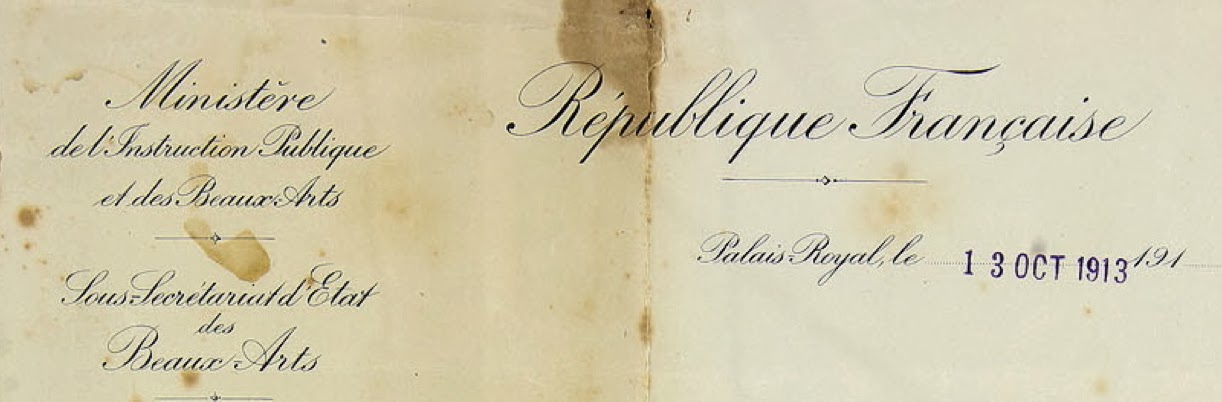 Ministère
de l'Instruction Publique
et des Beaux-Arts
Sous-Secrétariat d'État
des
Beaux-Arts
République Française
Palais-Royal, le 13 OCT 1913 191